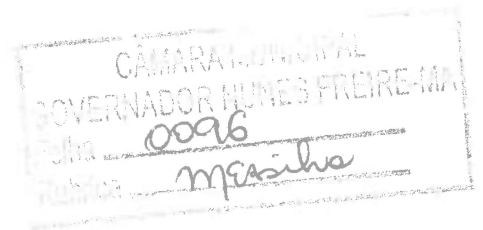 CÂMARA MUNICIPAL
GOVERNADOR NUNES FREIRE-MA
Folha 0096
Rubrica